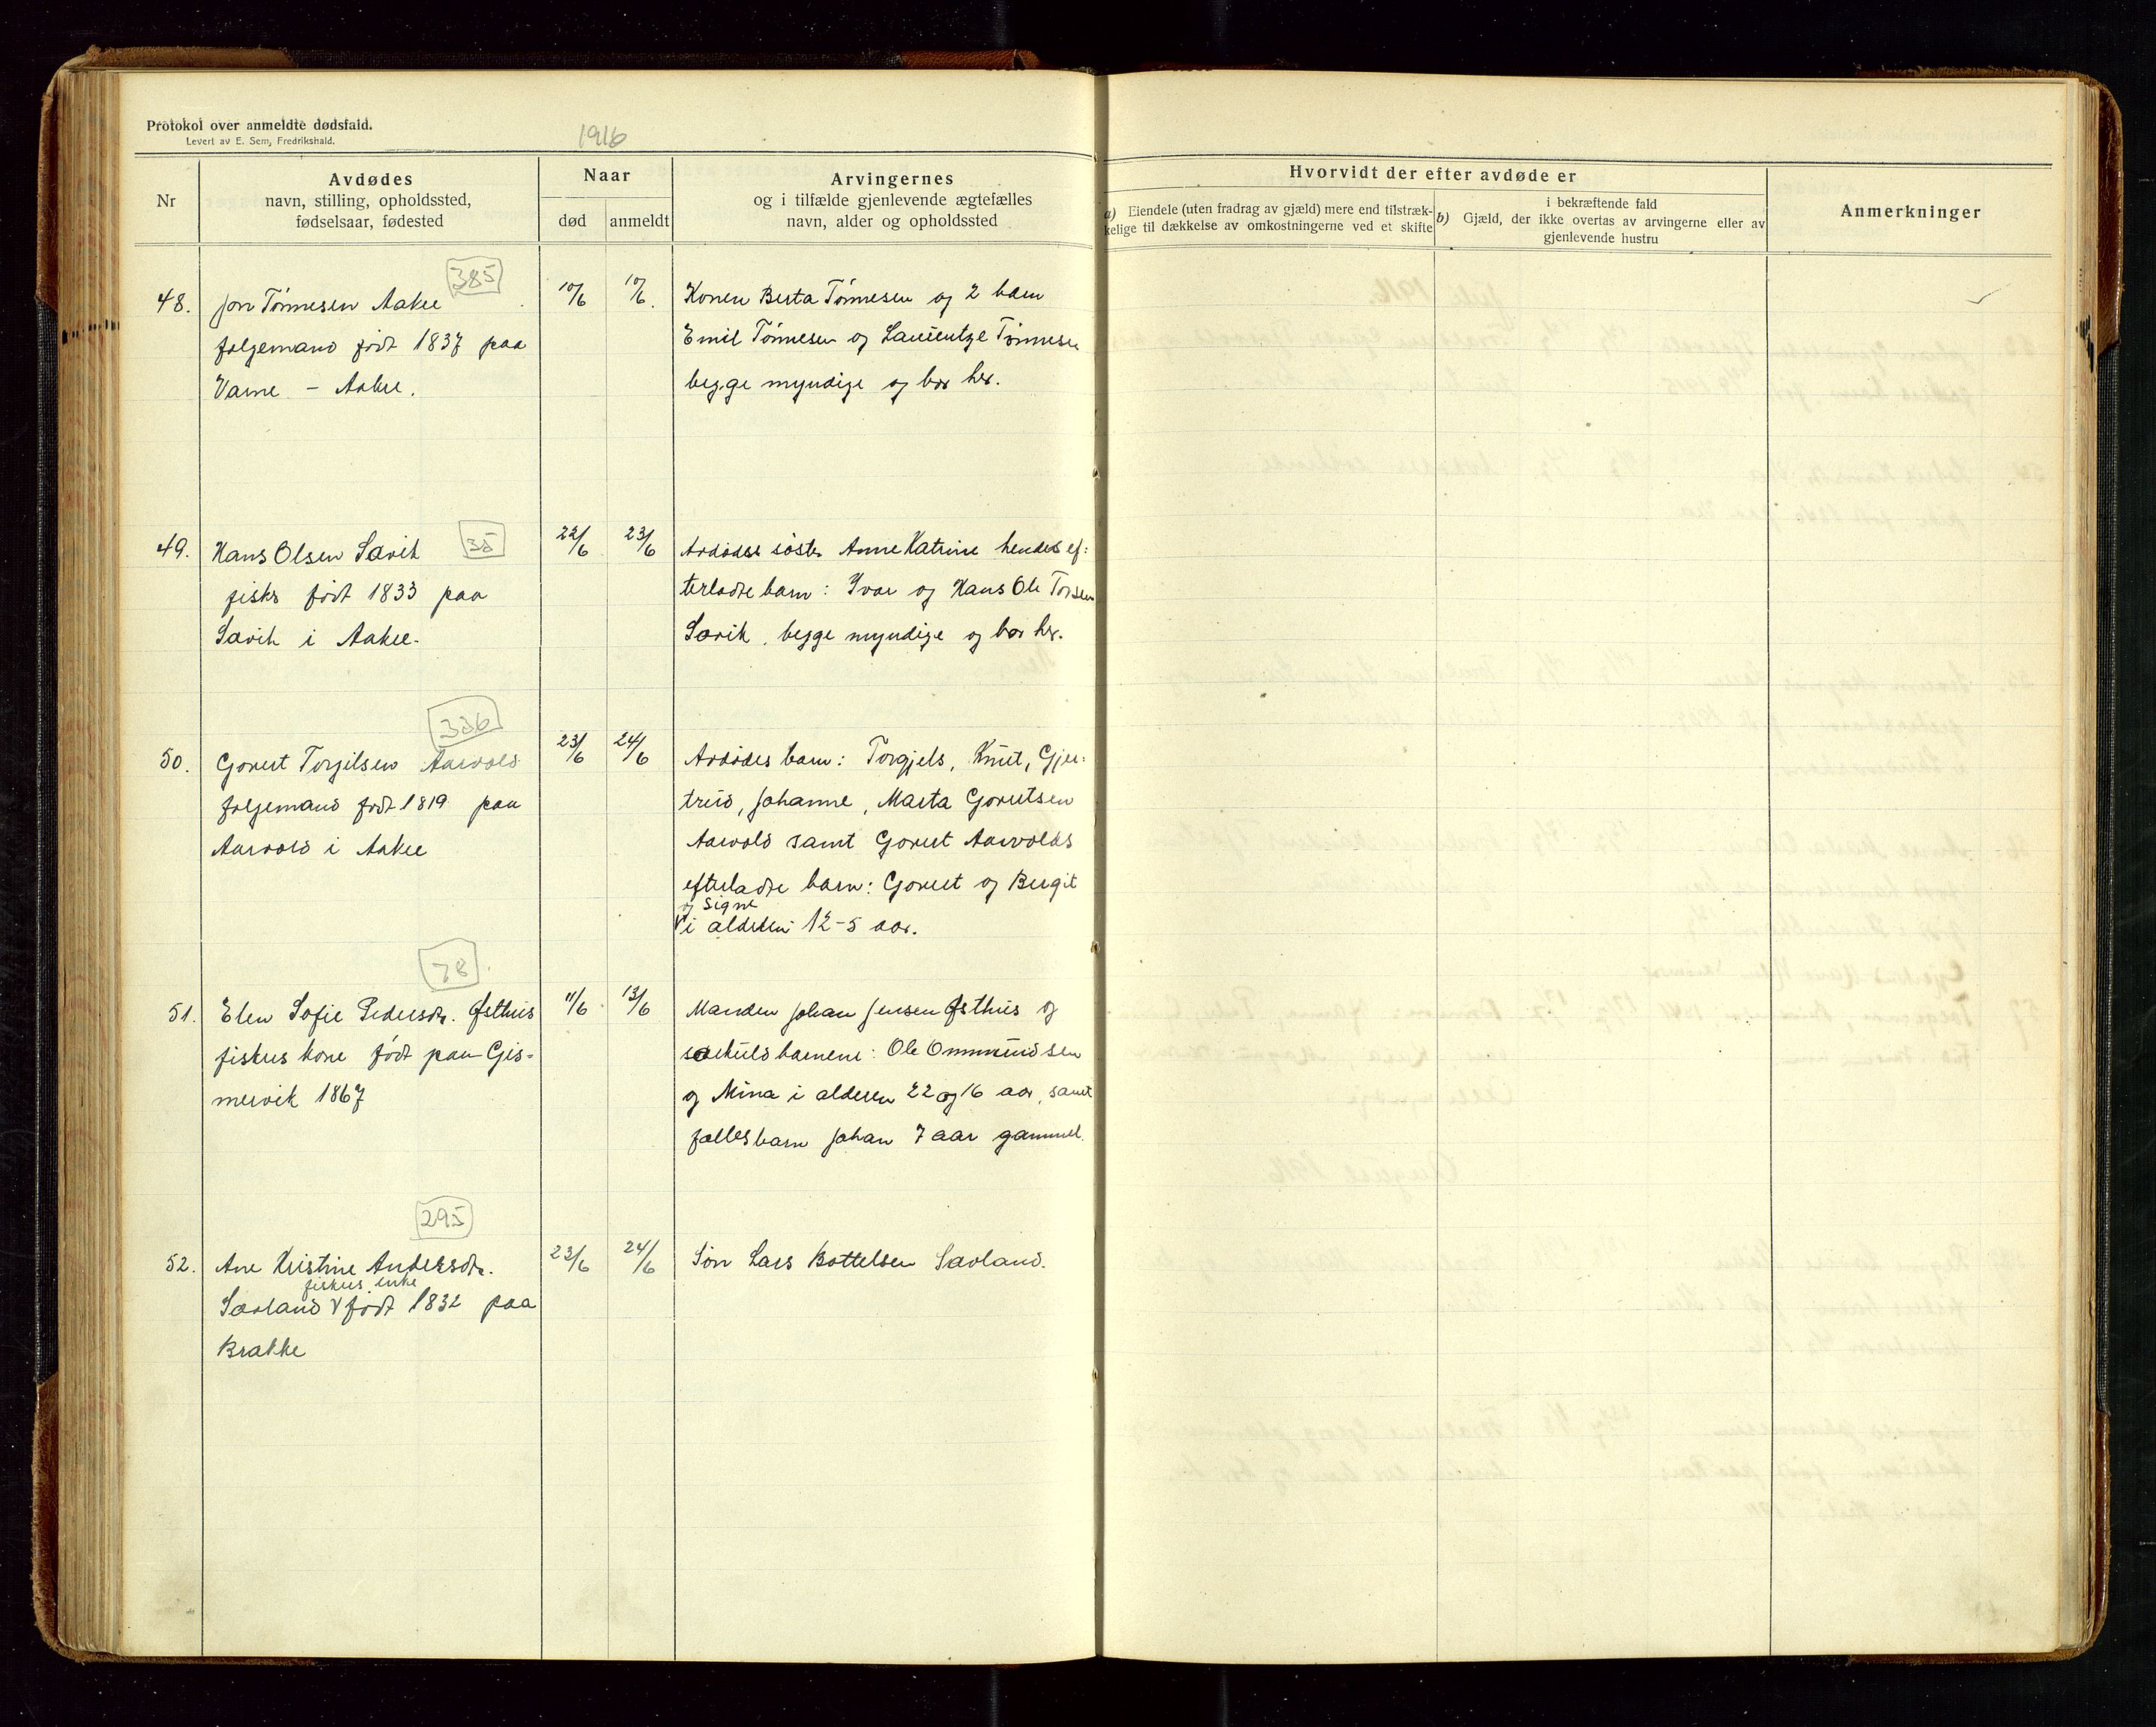 Protokol over anmeldte dødsfald.
Levert av E. Sem, Fredrikshald.
1916
Nr
Avdødes
navn, stilling, opholdssted,
fødselsaar, fødested
Naar
død
anmeldt
Arvingernes
og i tilfælde gjenlevende ægtefælles
navn, alder og opholdssted
Hvorvidt der efter avdøde er
a) Eiendele (uten fradrag av gjæld) mere end tilstræk-
kelige til dækkelse av omkostningerne ved et skifte
i bekræftende fald
b) Gjæld, der ikke overtas av arvingerne eller av
gjenlevende hustru
Anmerkninger
385
48. Jon Tönnesen Aakre 10/6 10/6. Konen Berta Tönnesen og 2 barn
folgemand född 1837 paa Emil Tönnesen og Laurentze Tönnesen
Varne - Aakre. begge myndige og bor her.
35
49. Hans Olsen Savik 22/6 23/6 Avdödes söster Anne Katrine hendes ef:
fisker född 1833 paa terladte barn: Ivar og Hans Ole Torsen
Savik i Aakre. Savik, begge myndige og bor her.
386
50. Govert Torgilsen Aarvold 23/6 24/6 Avdödes barn: Torgjels, Knut, Gjer:
folgemand född 1819 paa trud, Johanne, Marta Govertsen
Aarvold i Aakre Aarvold samt Govert Aarvolds
efterladte barn: Govert og Bergit
og Signe
V i alderen 12-5 aar.
78
51. Elen Sofie Pedersdr. Østhus 11/6 13/6 Manden Johan Jensen Østhus og
fiskers kone född paa Gis- særkuldbarnene: Ole Ommundsen
mervik 1867 og Mina i alderen 22 og 16 aar, samt
fællesbarn Johan 7 aar gammel.
295
52. Ane Kristine Andersdr. 23/6 24/6 Sön Lars Bottelsen Savland.
fiskers enke
Savland V född 1832 paa
Brakke